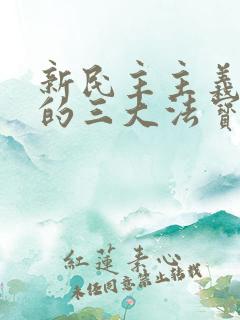 新民主主義
的三大法寶
紅蓮素心
未经同意禁止转载